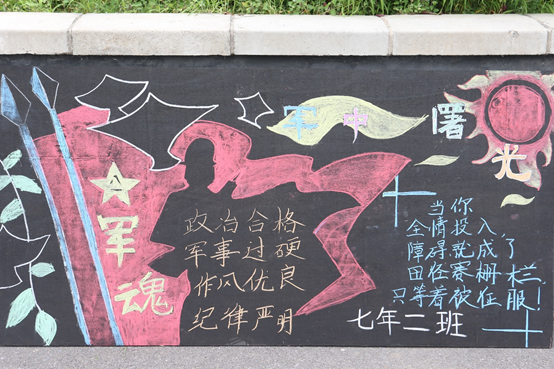 军魂
政治合格
军事过硬
作风优良
纪律严明
军中
曙光
当你
全情投入,
障碍就成了
田径赛栅栏
只等着被征服!
七年二班